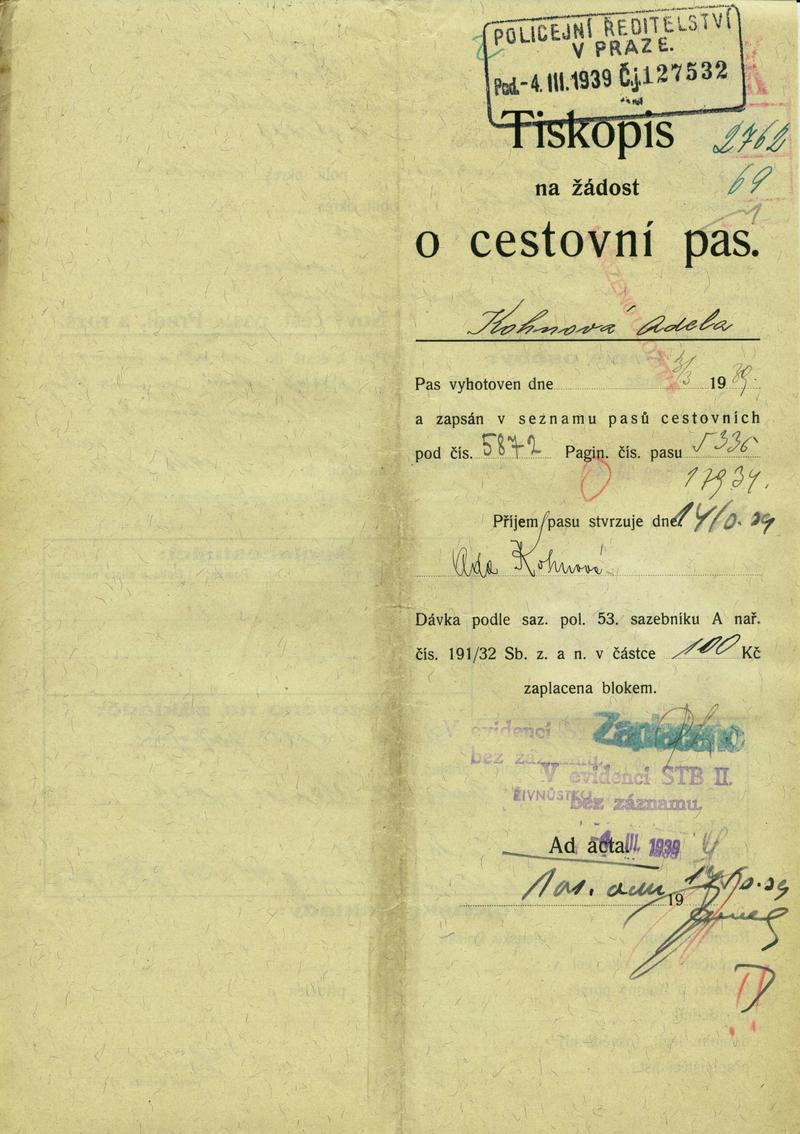 POLICEJNÍ ŘEDITELSTVÍ
V PRAZE.
Pod.-4. III. 1939 Č.j. 127532
Tiskopis
2762
69
na žádost
o cestovní pas.
Kohnová Adela
Pas vyhotoven dne 19 39.
a zapsán v seznamu pasů cestovních
pod čís. 5872 Pagin. čís. pasu 5336
17934.
Příjem pasu stvrzuje dne 14/3. 39
Ada Kohnová
Dávka podle saz. pol. 53. sazebníku A nař.
čís. 191/32 Sb. z. a n. v částce 100 Kč
zaplacena blokem.
Zaplaceno
V evidenci
bez záznamu.
V evidenci STB II.
ŽIVNŮSTKU
bez záznamu.
Ad acta. III. 1939
19